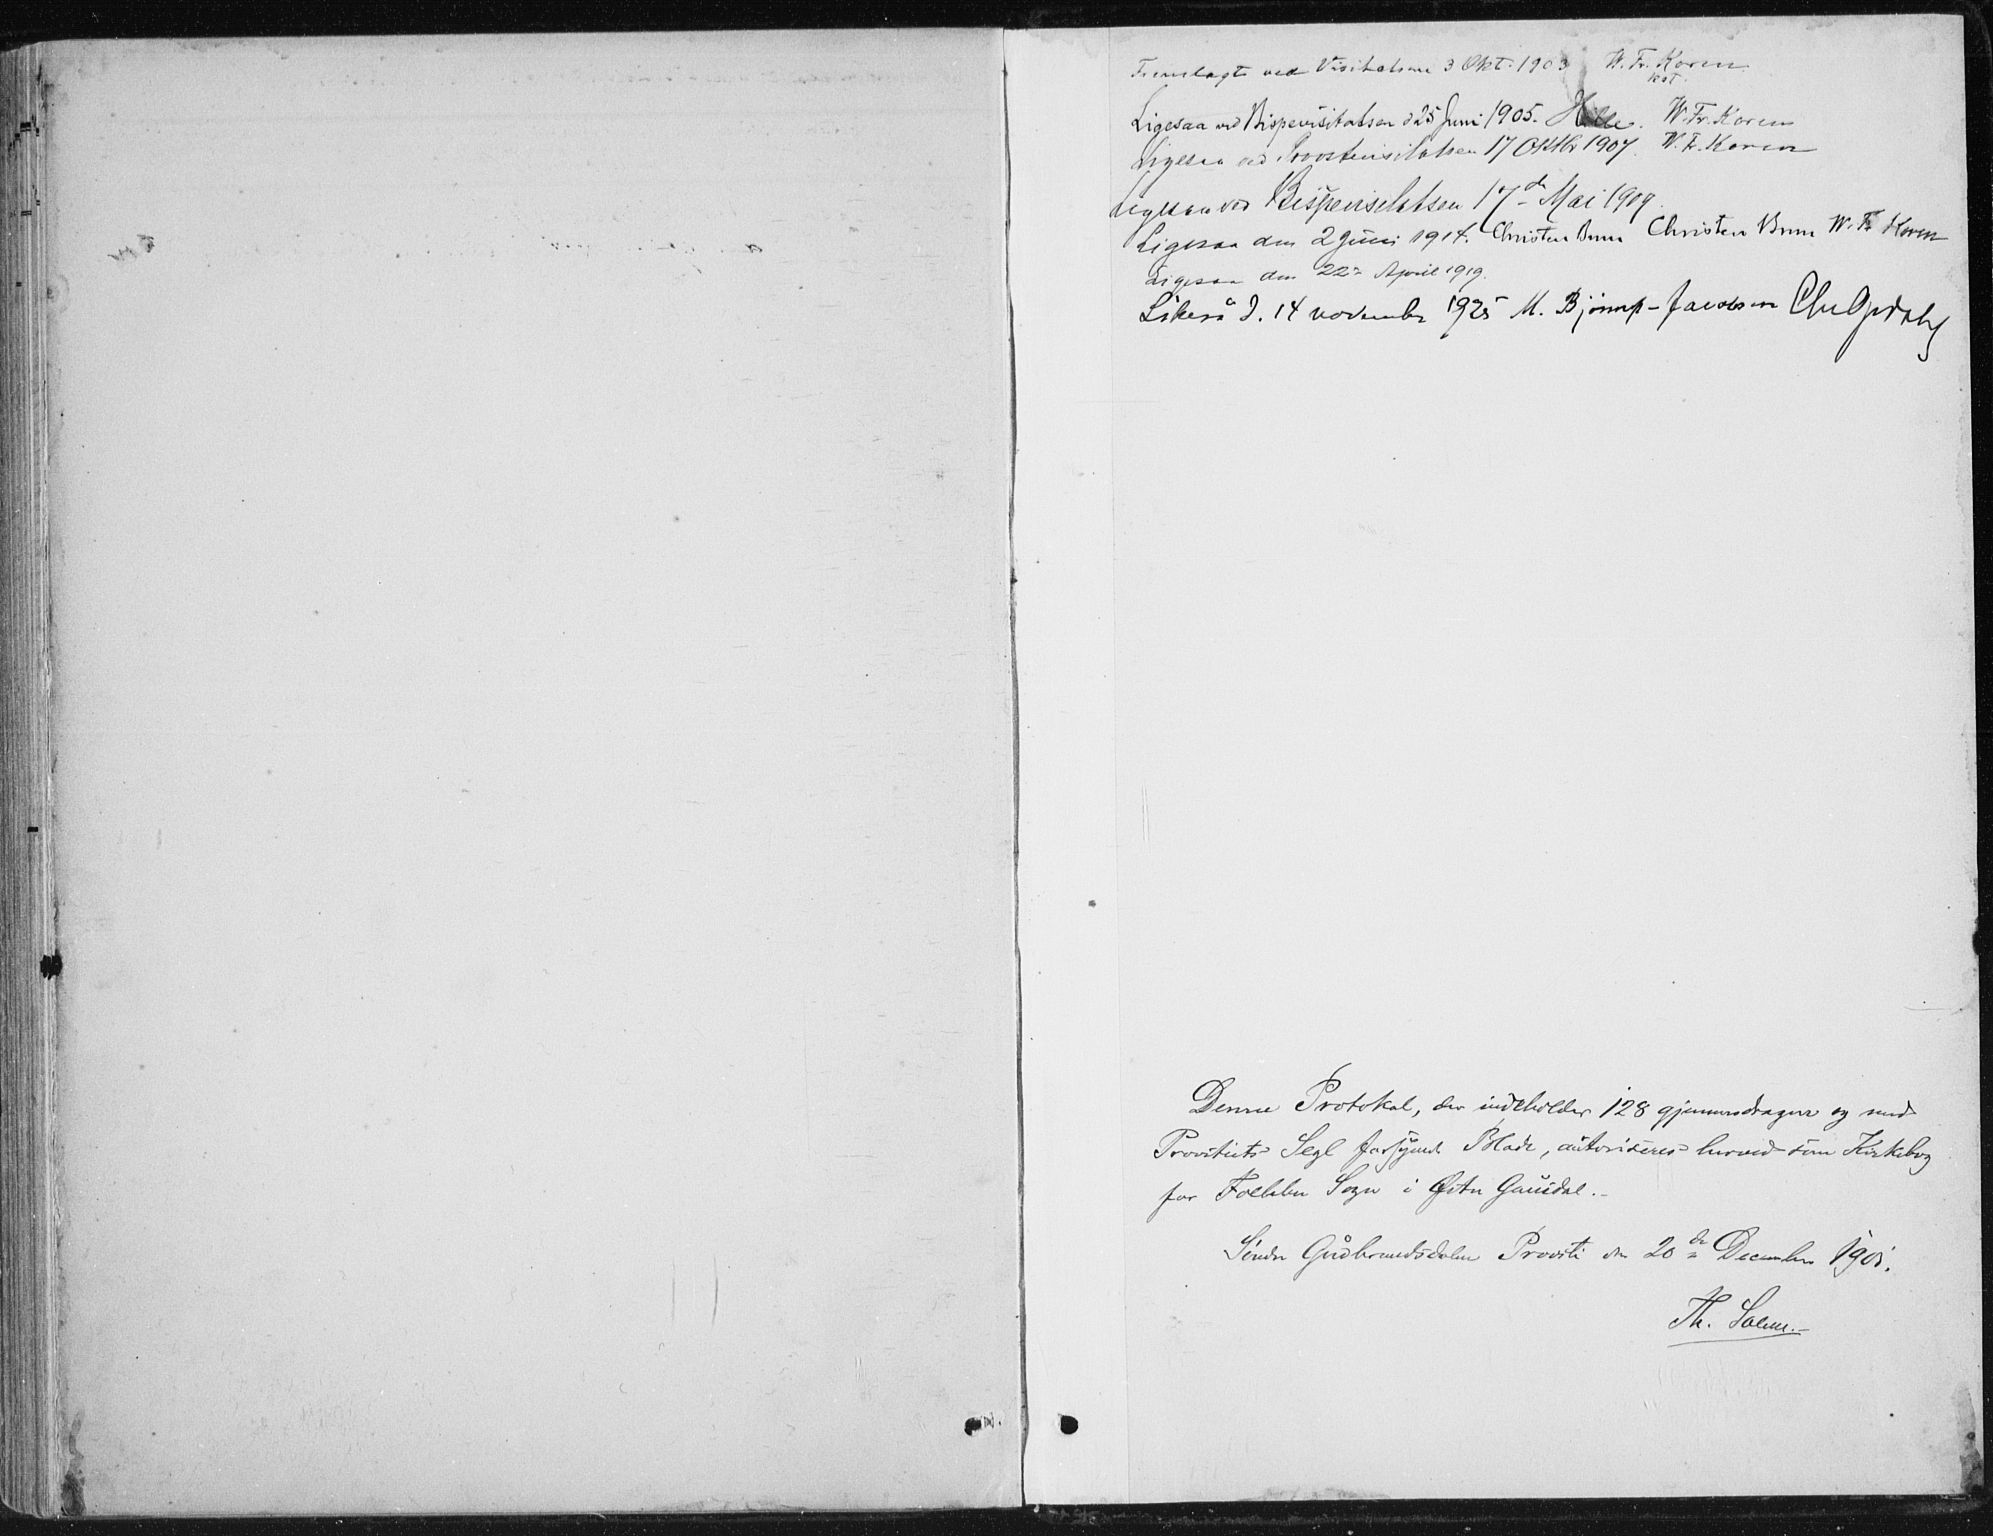 Fremlagt ved Visitatsen 3 Okt. 1903 W. Fr. Koren
kst.
Ligesaa ved Bispevisitatsen d 25 Juni 1905. Hille. W. Fr. Koren
Ligesaa ved Provstevisitatsen 17 Oktbr 1907. W. F. Koren
Ligesaa ved Bispevisitatsen 17de Mai 1909.
Ligesaa den 2 Juni 1914. Christen Brun Christen Brun W. Fr Koren
Ligesaa den 22 April 1919.
Likeså d. 14 november 1925 M. Bjønnes-Jacobsen Chr Opdahl
Denne Protokol, der indeholder 128 gjennemdragne og med
Provstiets Segl forsynede Blade, autoriseres herved som Kirkebog
for Follebu Sogn i Østre Gausdal.-
Søndre Gudbrandsdalens Provsti den 20de December 1901.
Th.